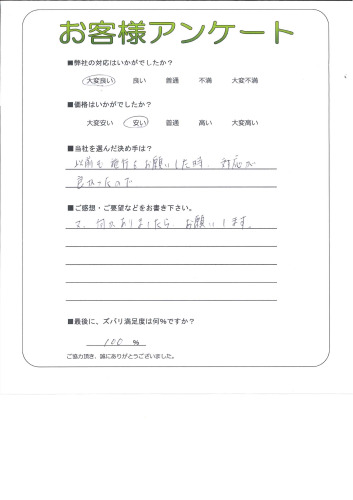 お客様アンケート
■弊社の対応はいかがでしたか?
大変良い 良い 普通 不満 大変不満
■価格はいかがでしたか?
大変安い 安い 普通 高い 大変高い
■当社を選んだ決め手は?
以前も お願いした時、対応が
良かったので
■ご感想・ご要望などをお書き下さい。
又、何かありましたら、お願いします。
■最後に、ズバリ満足度は何%ですか?
100 %
ご協力頂き、誠にありがとうございました。